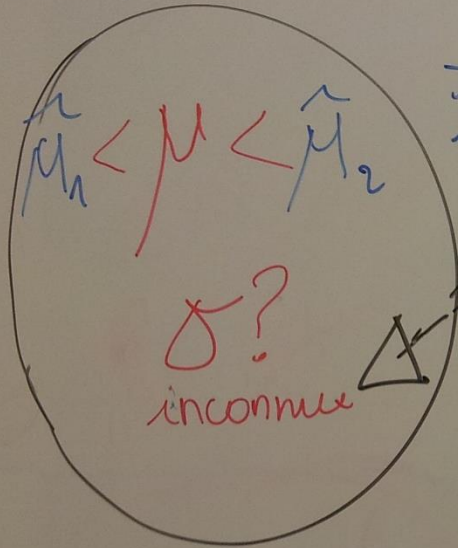 μ̂₁ < μ < μ̂₂
σ?
inconnue